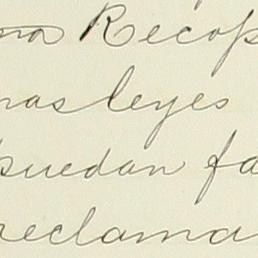 na Recop
nas leyes
puedan fa
reclama